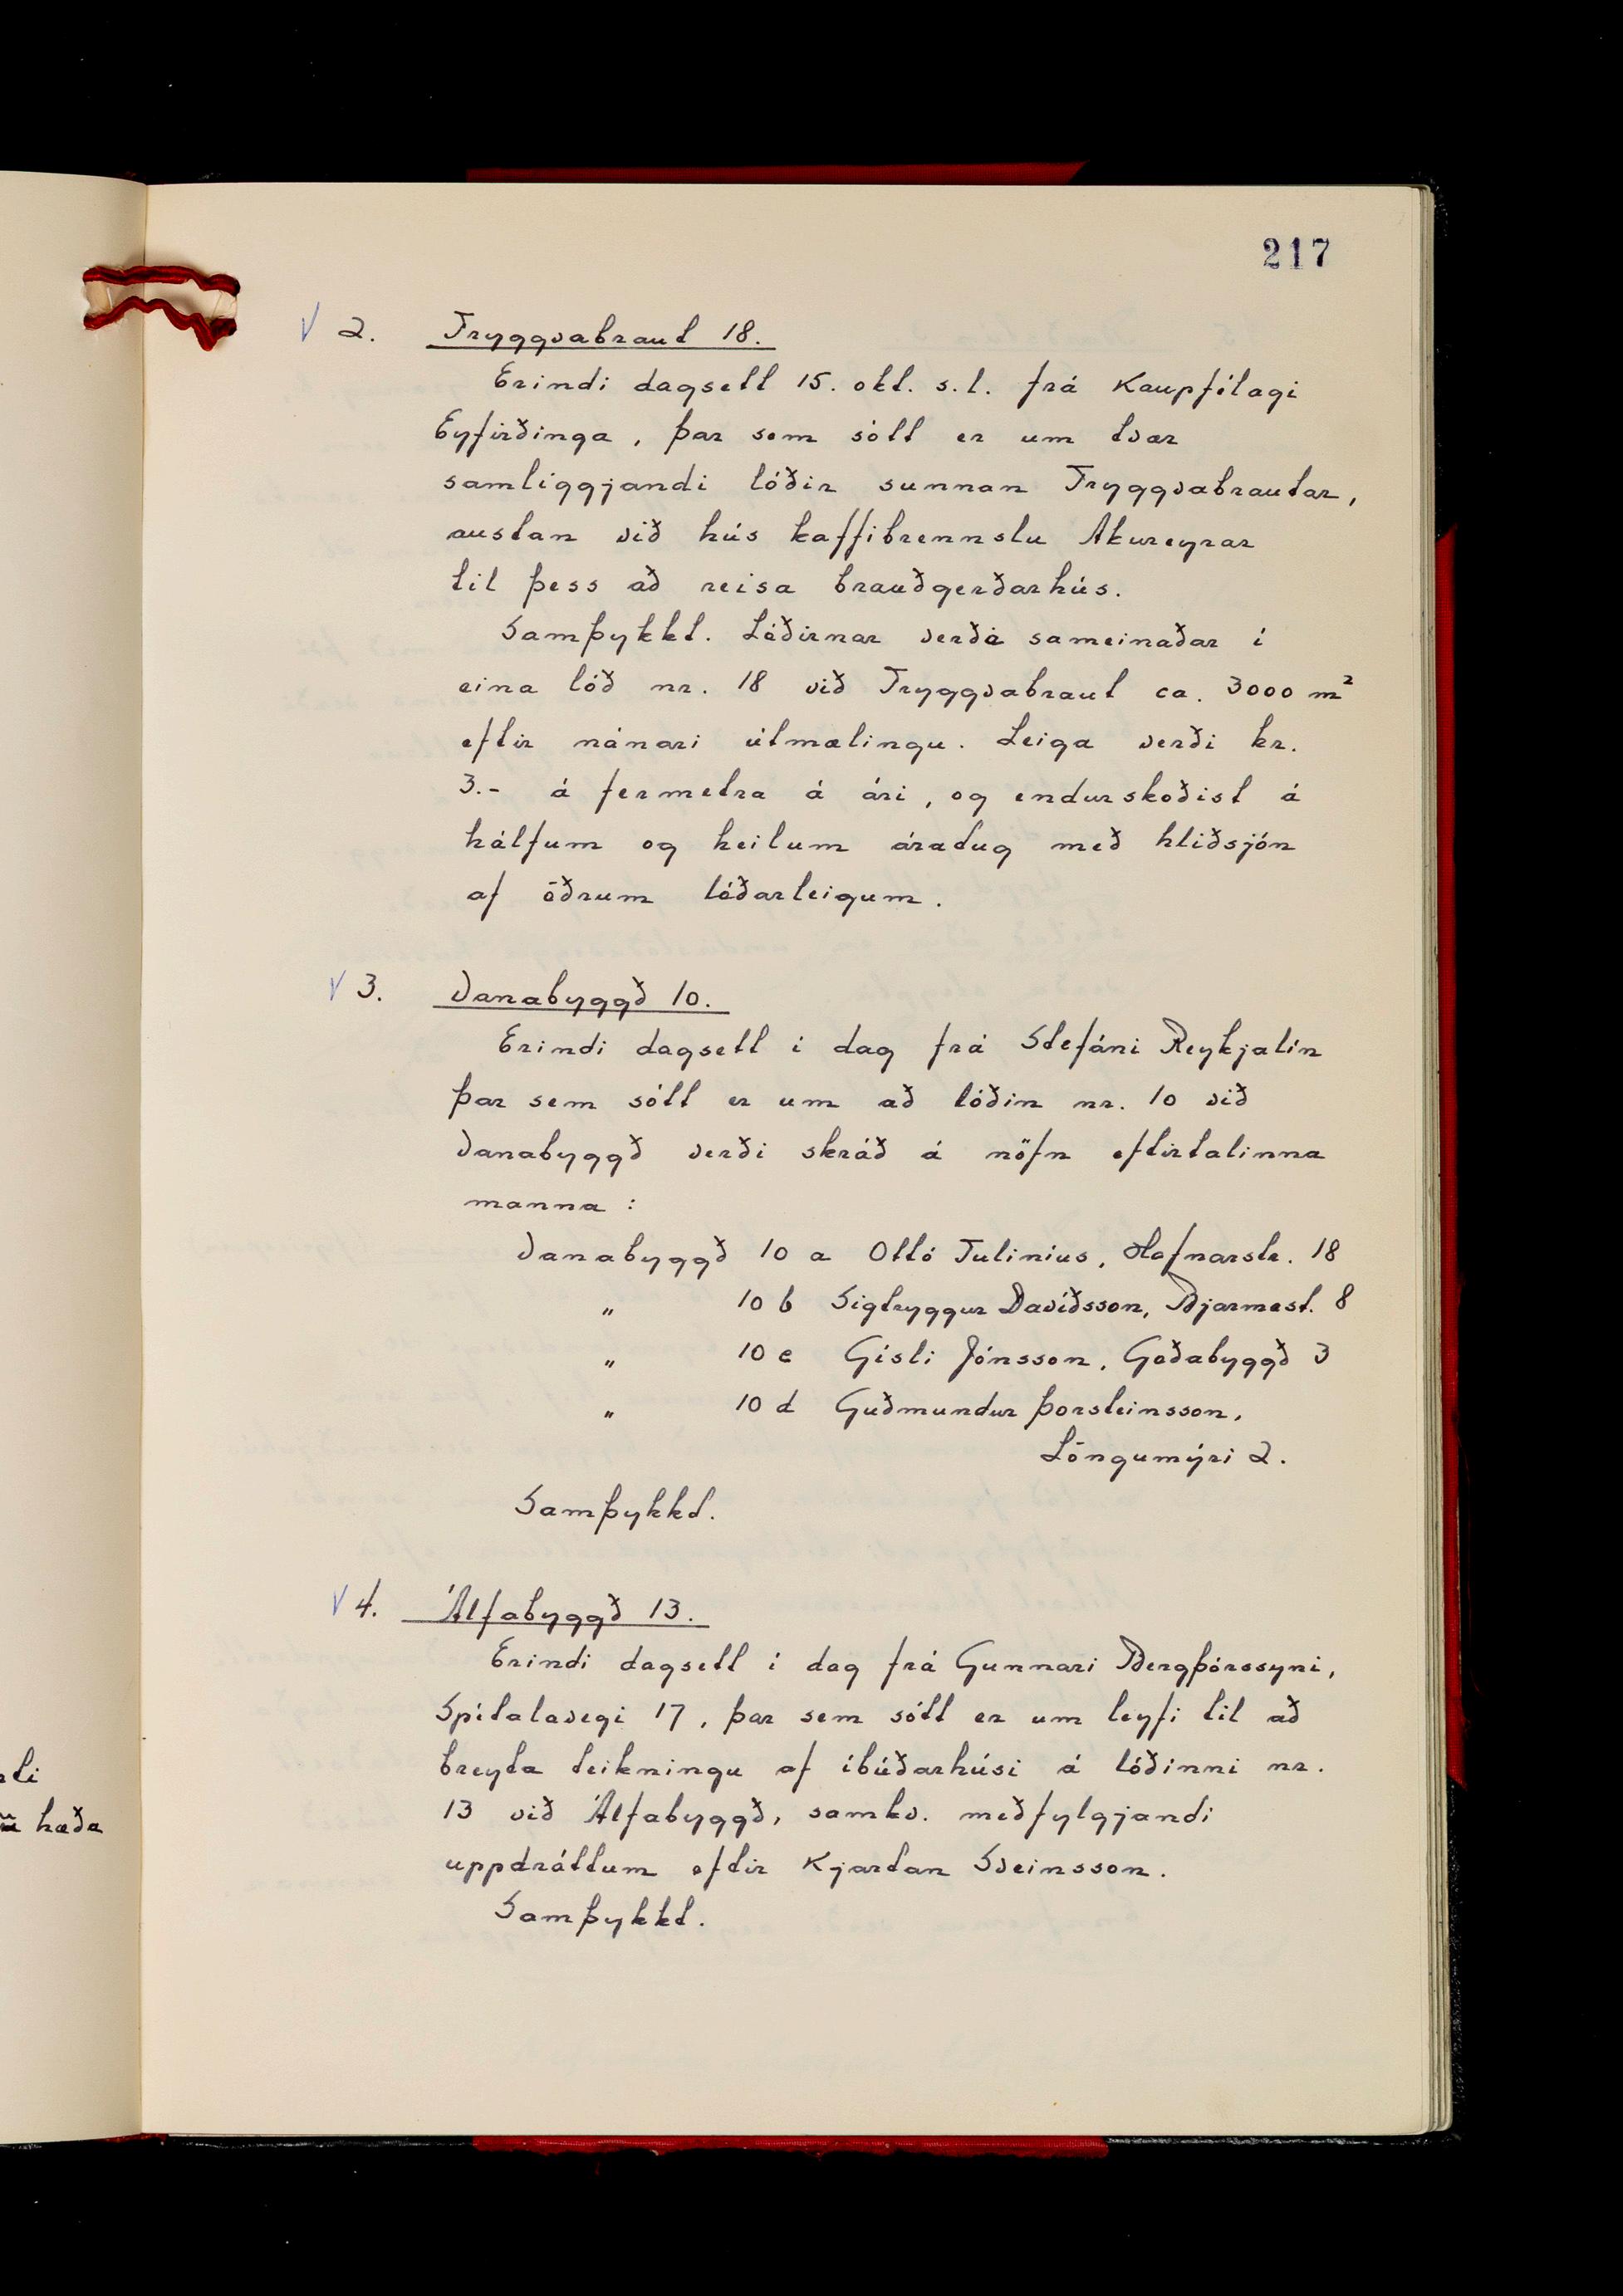 217
V 2. Tryggvabraut 18.
Erindi dagsett 15. okt. s.l. frá Kaupfélagi
Eyfirðinga, þar sem sótt er um tvær
samliggjandi lóðir sunnan Tryggvabrautar,
austan við hús kaffibrennslu Akureyrar
til þess að reisa brauðgerðarhús.
Samþykkt. Lóðirnar verða sameinaðar í
eina lóð nr. 18 við Tryggvabraut ca. 3000 m²
eftir nánari útmælingu. Leiga verði kr.
3.- á fermetra á ári, og endurskoðist á
hálfum og heilum áratug með hliðsjón
af öðrum lóðarleigum.
V 3. Vanabyggð 10.
Erindi dagsett í dag frá Stefáni Reykjalín
þar sem sótt er um að lóðin nr. 10 við
Vanabyggð verði skráð á nöfn eftirtalinna
manna :
Vanabyggð 10 a Ottó Tulinius, Hafnarstr. 18
" 10 b Sigtryggur Davíðsson, Bjarmast. 8
" 10 c Gísli Jónsson, Goðabyggð 3
" 10 d Guðmundur Þorsteinsson,
Löngumýri 2.
Samþykkt.
V 4. Álfabyggð 13.
Erindi dagsett í dag frá Gunnari Bergþórssyni,
Spítalavegi 17, þar sem sótt er um leyfi til að
breyta teikningu af íbúðarhúsi á lóðinni nr.
13 við Álfabyggð, samkv. meðfylgjandi
uppdráttum eftir Kjartan Sveinsson.
Samþykkt.
hæða